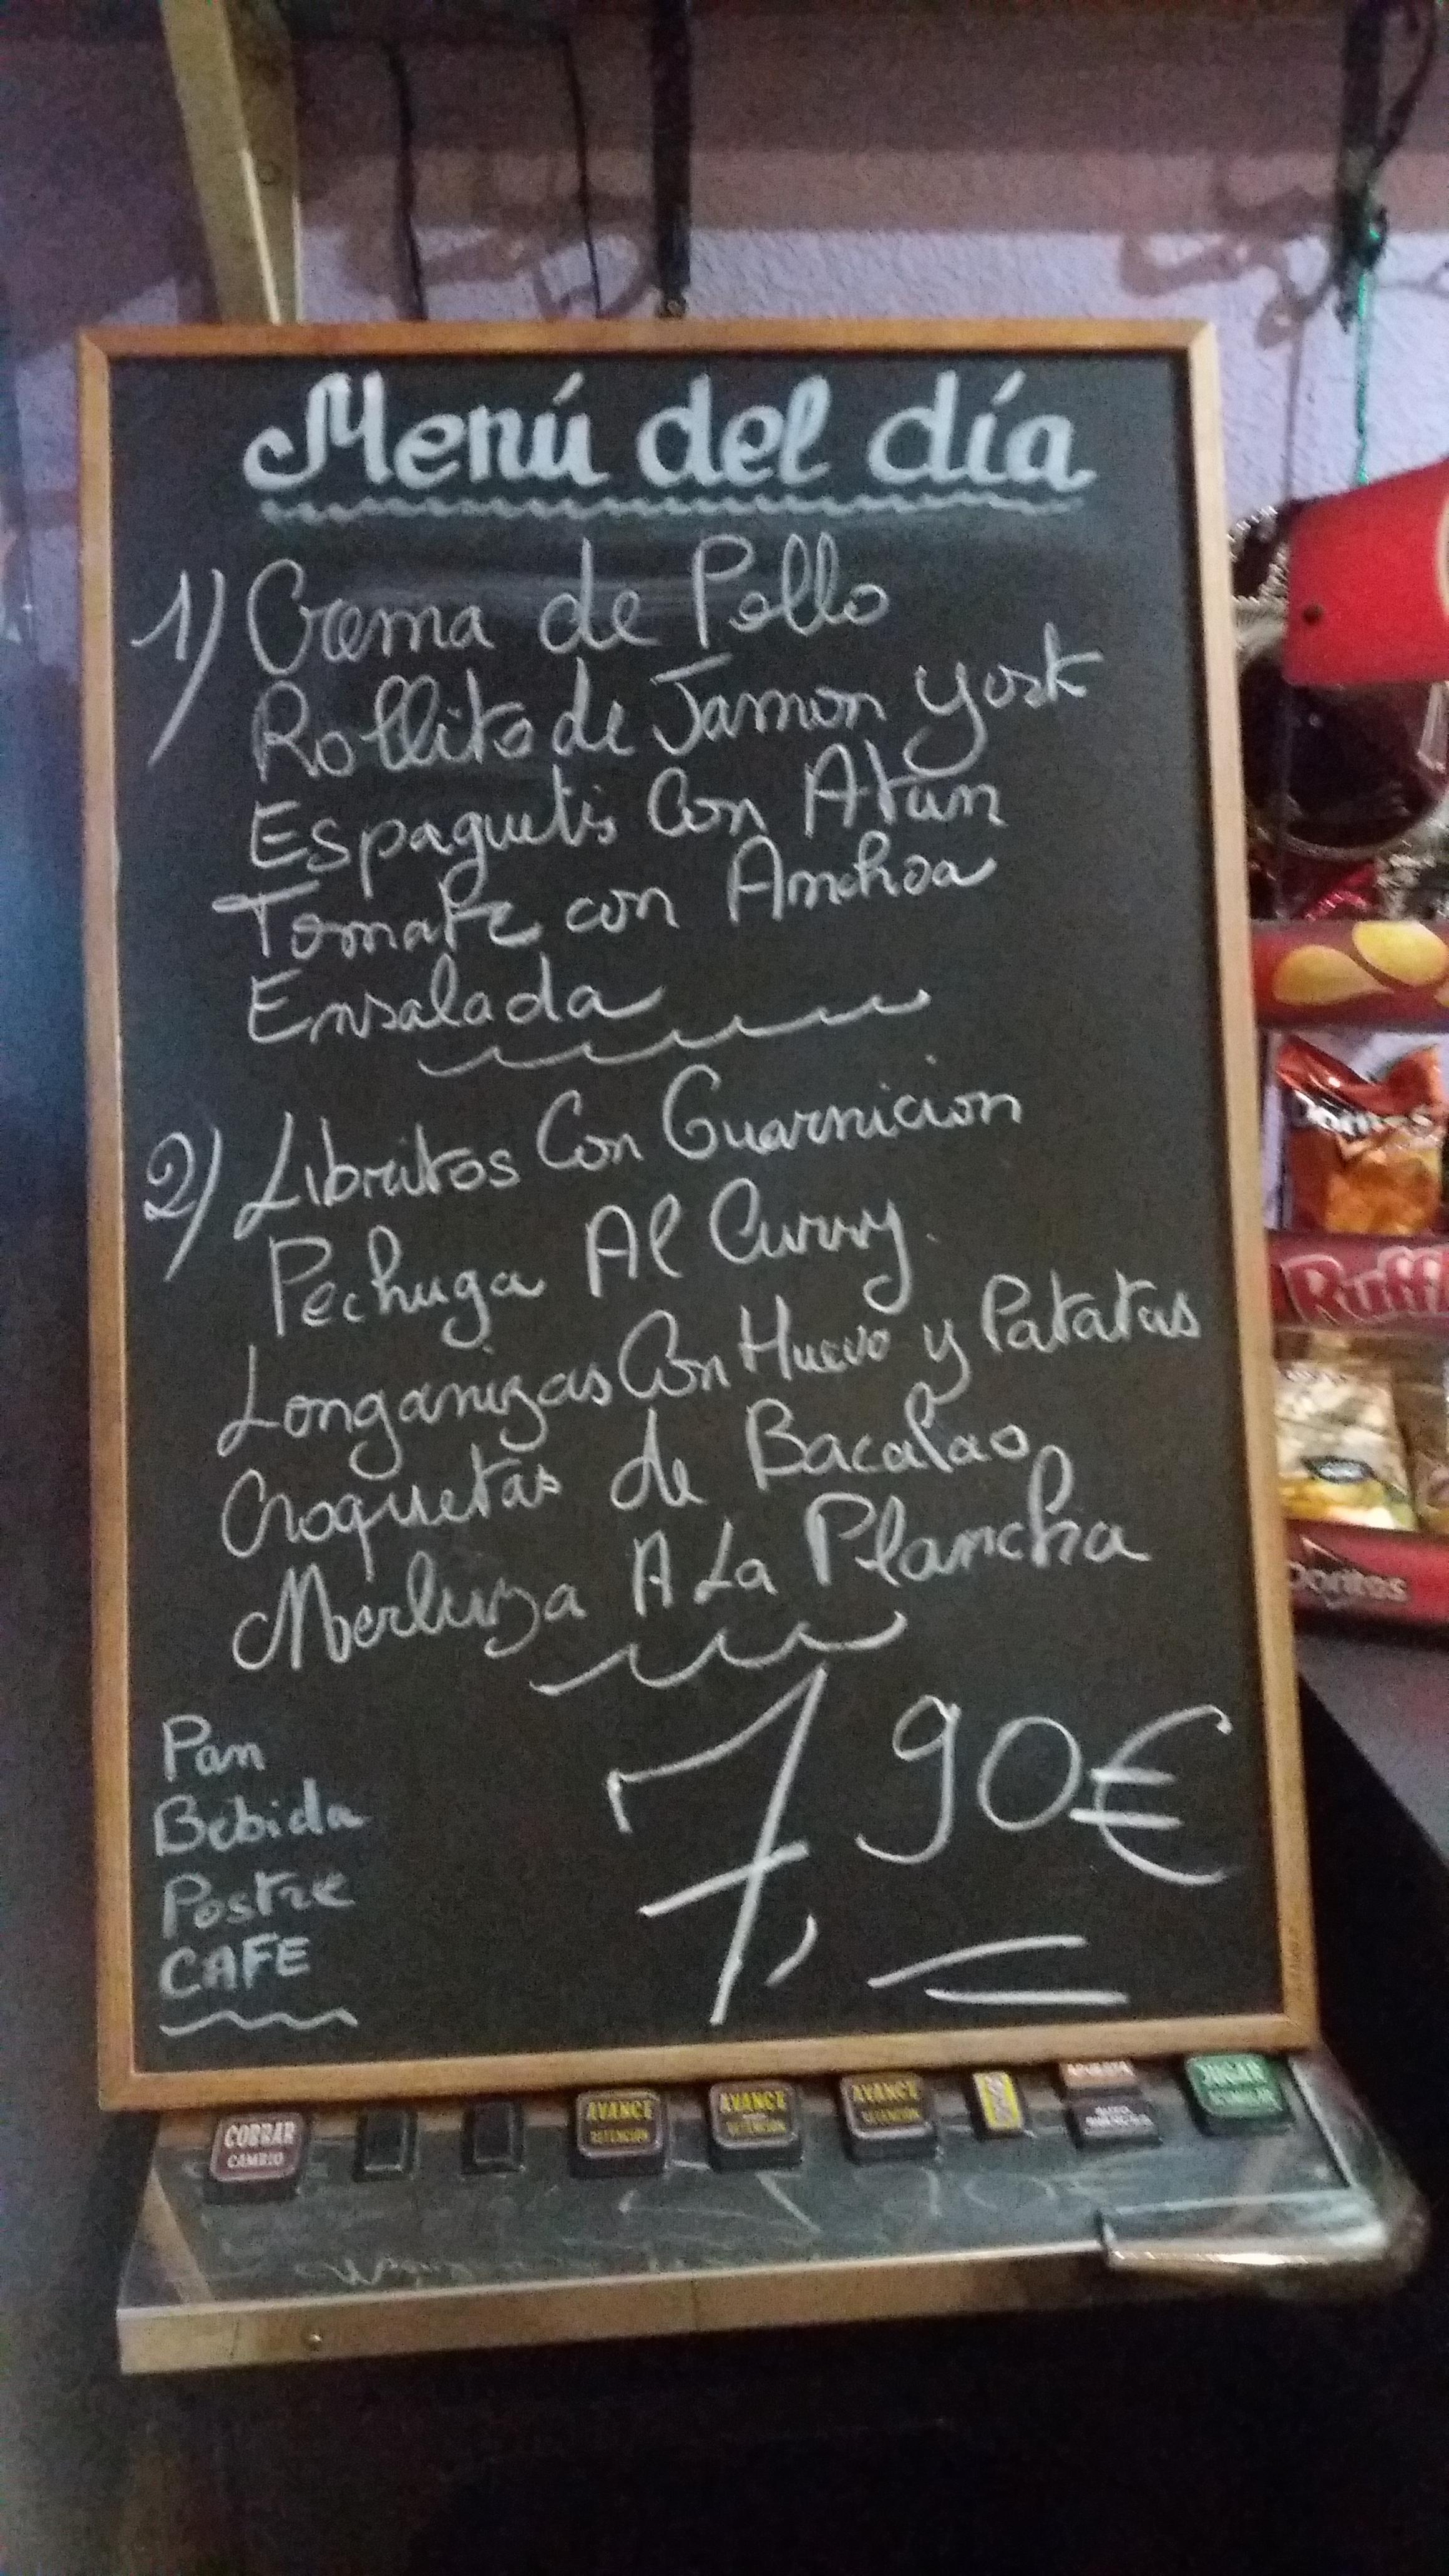 Menú del día
1) Crema de Pollo
Rollito de Jamon york
Espaguetis Con Atun
Tomate con Anchoa
Ensalada
2) Libritos Con Guarnicion
Pechuga Al Curry.
Longanizas Con Huevo y Patatas
Croquetas de Bacalao
Merluza A La Plancha
Pan
Bebida
Postre
CAFE
7,90€
Doritos
Ruffl
Doritos
COBRAR
CAMBIO
AVANCE
RETENCION
AVANCE
RETENCION
AVANCE
RETENCION
APUESTA
JUGAR